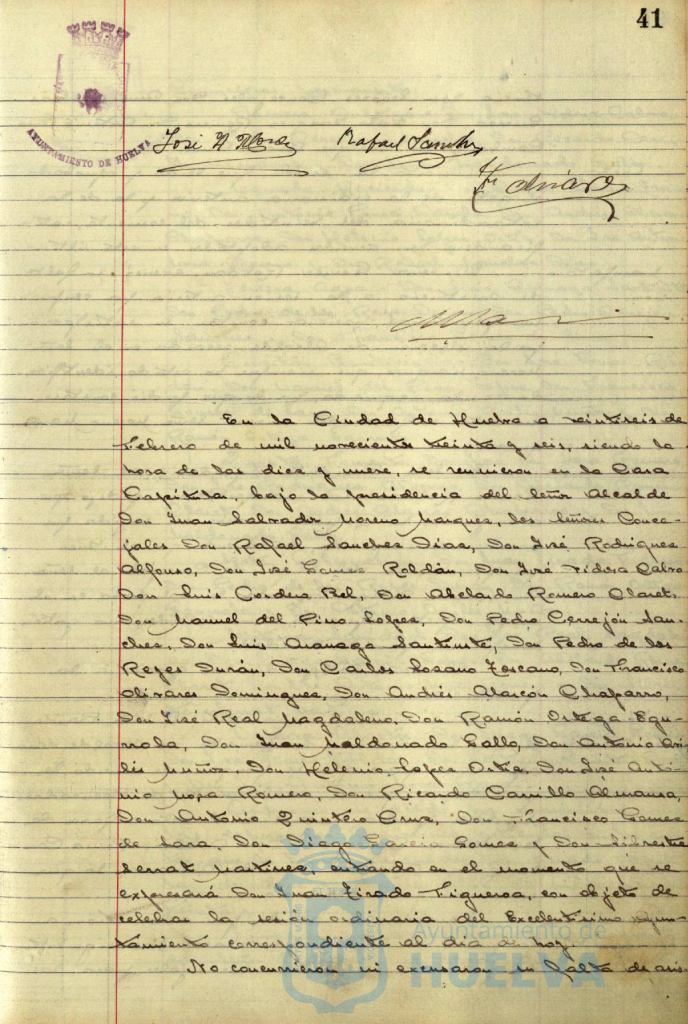 41
AYUNTAMIENTO DE HUELVA
José A Rafael Sanchez
En la Ciudad de Huelva a veintiseis de
Febrero de mil novecientos treinta y seis, siendo la
hora de las diez y nueve, se reunieron en la Casa
Capitular, bajo la presidencia del Señor Alcalde
Don Juan Salvador Moreno Marquez, los Señores Conce-
jales Don Rafael Sanchez Diaz, Don José Rodriguez
Alfonso, Don José Gomez Roldán, Don José Tidora Calvo
Don Luis Cordero Bel, Don Abelardo Romero Claret,
Don Manuel del Pino Lopez, Don Pedro Cerrejón San-
chez, Don Luis Aranaga Santiuste, Don Pedro de los
Reyes Durán, Don Carlos Lozano Toscano, Don Francisco
Olivares Dominguez, Don Andrés Alarcón Chaparro,
Don José Real Magdaleno, Don Ramón Ortega Egu-
rrola, Don Juan Maldonado Gallo, Don Antonio
Muñoz, Don Helenio Lopez Ortiz, Don José Anto-
nio Mora Romero, Don Ricardo Carrillo Almansa,
Don Antonio Quintero Cruz, Don Francisco Gomez
de Lara, Don Diego Garcia Gomez y Don Silvestre
Serrat Martinez, entrando en el momento que se
expresará Don Juan Tirado Figueroa, con objeto de
celebrar la sesión ordinaria del Excelentisimo Ayun-
tamiento correspondiente al dia de hoy.
No concurrieron ni excusaron su falta de asis-
Ayuntamiento de
HUELVA